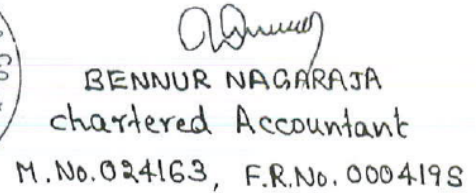 BENNUR NAGARAJA
chartered Accountant
M.No.024163, F.R.No. 000419S